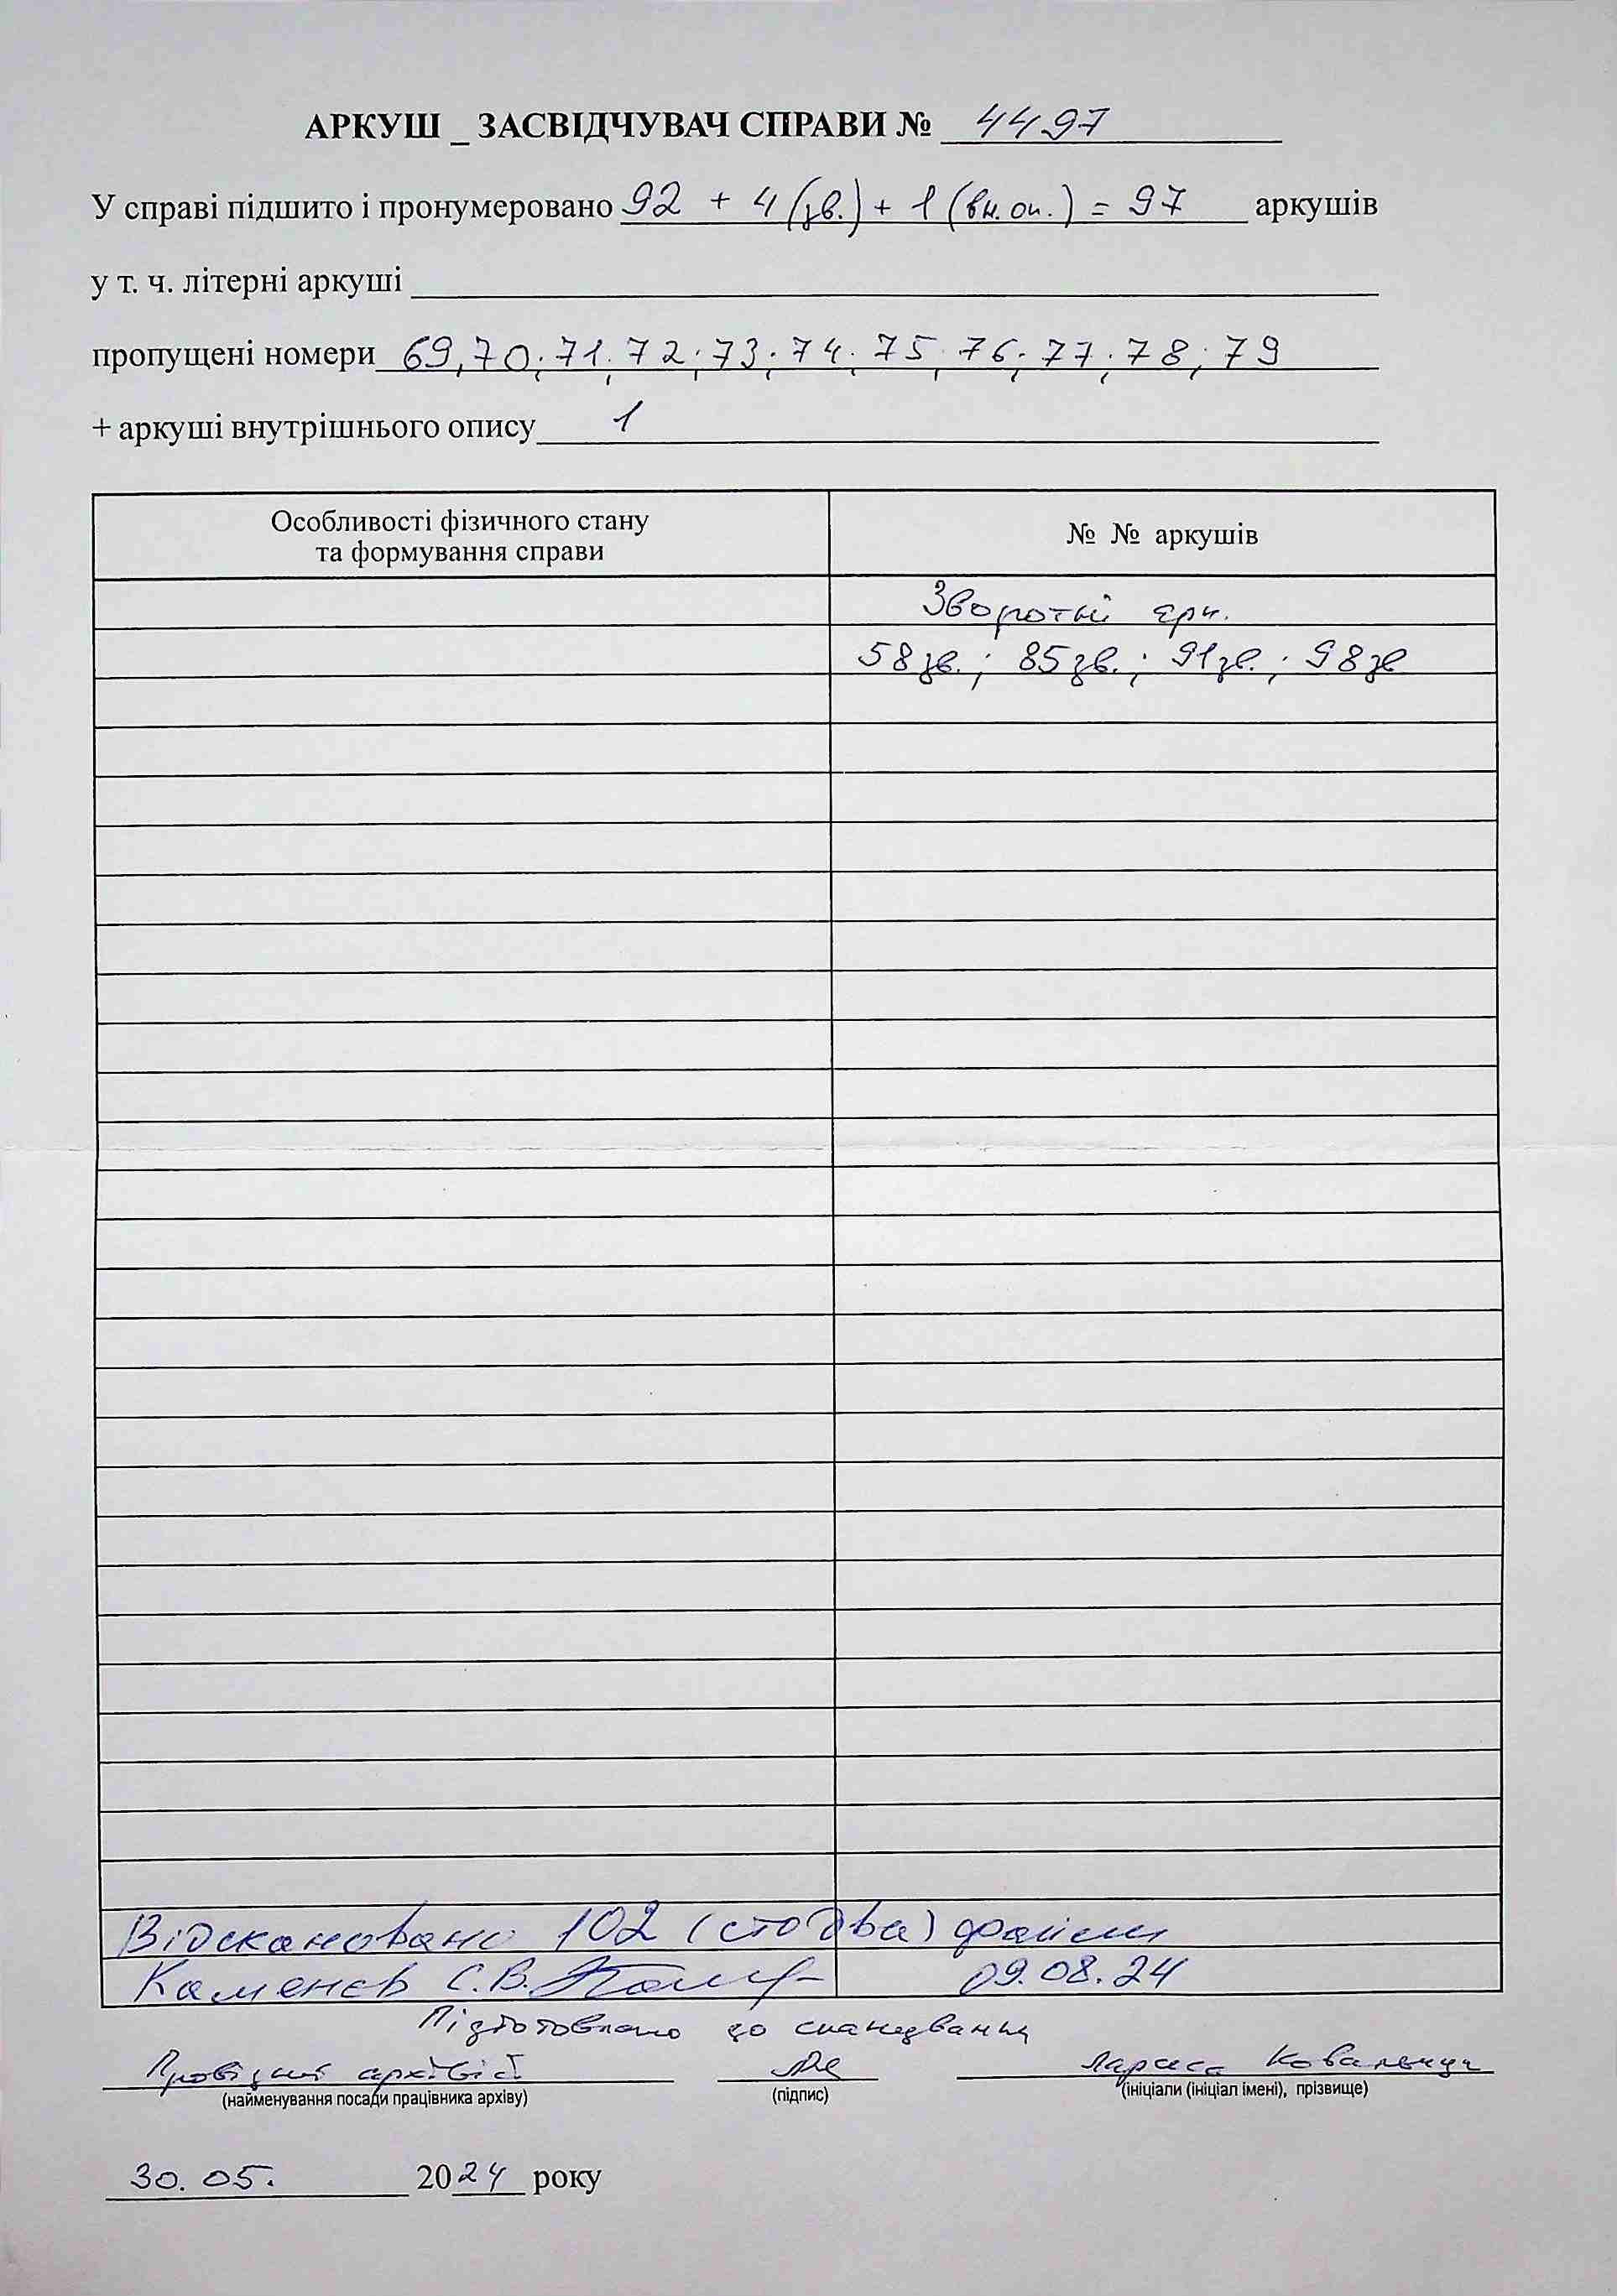 АРКУШ _ ЗАСВІДЧУВАЧ СПРАВИ № 4497
У справі підшито і пронумеровано 92 + 4 (зв.) + 1 (вн. оп.) = 97 аркушів
у т. ч. літерні аркуші
пропущені номери 69, 70; 71; 72; 73; 74; 75; 76; 77; 78; 79
+ аркуші внутрішнього опису 1
Особливості фізичного стану
та формування справи
№ № аркушів
Зворотні арк.
58зв.; 85зв.; 91зв.; 98зв
Відскановано 102 (сто два) файли
Каменєв С.В. 09.08.24
Підготовлено до сканування
Провідний архівіст Лариса
(найменування посади працівника архіву) (підпис) (ініціали (ініціал імені), прізвище)
30. 05. 2024 року